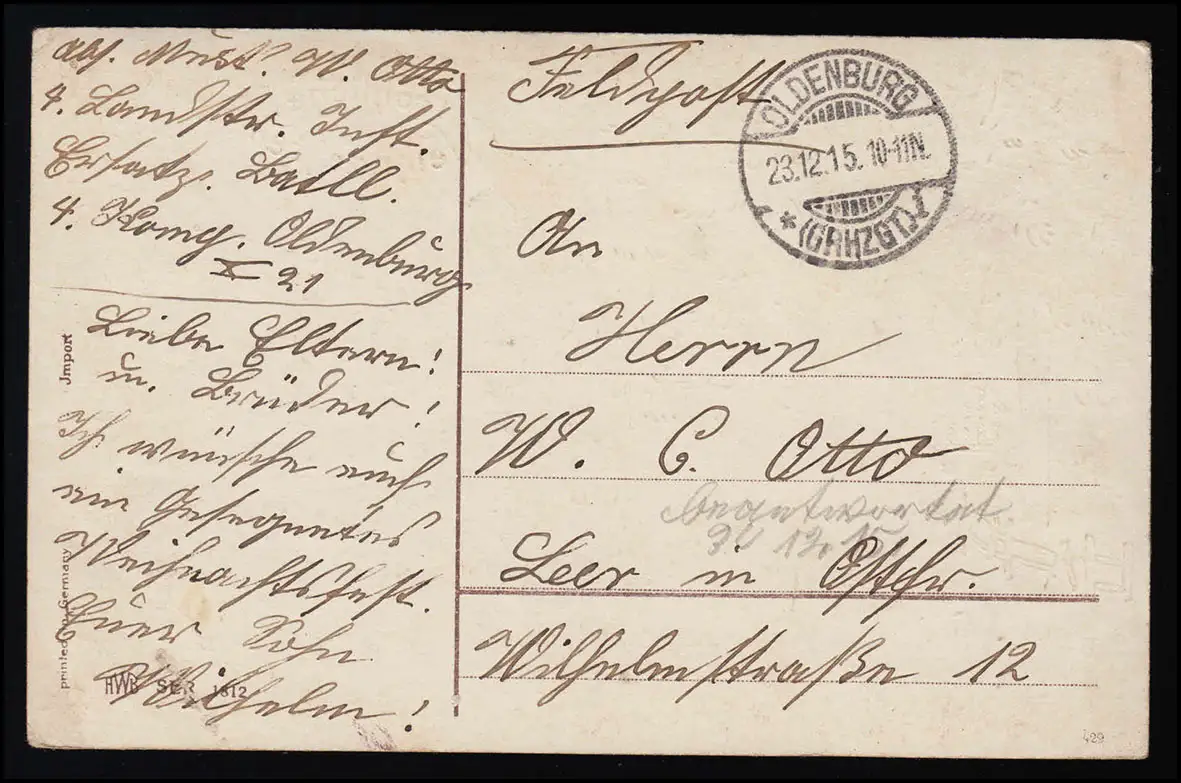 Abs. Musk. W. Otto
4. Landstr. Inft.
Ersatz. Batll.
4. Komp. Oldenburg
X 21
Liebe Eltern!
u. Brüder!
Ich wünsche euch
ein Gesegnetes
Weihnachtsfest.
Euer Sohn
Wilhelm!
Jmport
printed Germany
HWB SER 1812
Feldpost
OLDENBURG
23.12.15. 10-11N.
* (GRHZGT.)
An
Herrn
W. C. Otto
beantwortet
12. 15
Leer in Ostfr.
Wilhelmstraße 12
429